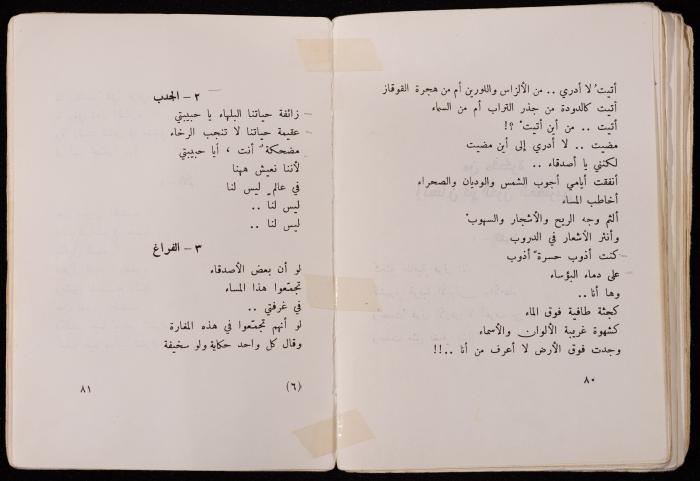 أتيتُ لا أدري .. من الألزاس واللورين أم من هجرة القوقاز
أتيت كالدودة من جذر التراب أم من السماء
أتيت .. من أين أتيتْ ؟!
مضيت .. لا أدري إلى أين مضيت
لكنني يا أصدقاء ..
أنفقت أيامي أجوب الشمس والوديان والصحراء
أخاطب المساء
ألثم وجه الريح والأشجار والسهوبْ
وأنثر الأشعار في الدروب
كنت أذوب حسرةً أذوب
على دماء البؤساء
وها أنا ..
كجثة طافية فوق الماء
كشهوة غريبة الألوان والأسماء
وجدت فوق الأرض لا أعرف من أنا ..!!
٨٠
٢ – الجدب
زائفة حياتنا البلهاء يا حبيبتي
عقيمة حياتنا لا تنجب الرخاء
مضحكةٌ أنت ، أيا حبيبتي
لأننا نعيش ههنا
في عالمٍ ليس لنا
ليس لنا ..
ليس لنا ..
٣ – الفراغ
لو أن بعض الأصدقاء
تجمّعوا هذا المساء
في غرفتي ..
لو أنهم تجمّعوا في هذه المغارة
وقال كل واحد حكاية ولو سخيفة
(٦)
٨١